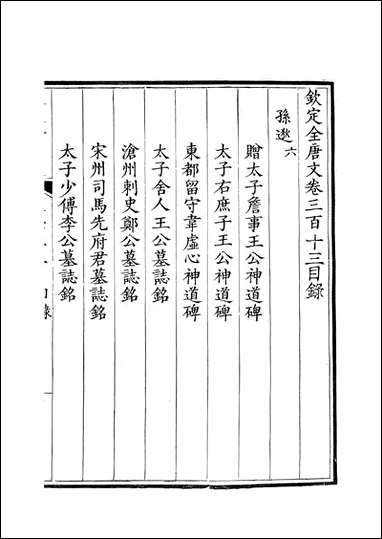 欽定全唐文卷三百十三目錄
孫逖 六
贈太子詹事王公神道碑
太子右庶子王公神道碑
東都留守韋虛心神道碑
太子舍人王公墓誌銘
滄州刺史鄭公墓誌銘
宋州司馬先府君墓誌銘
太子少傅李公墓誌銘